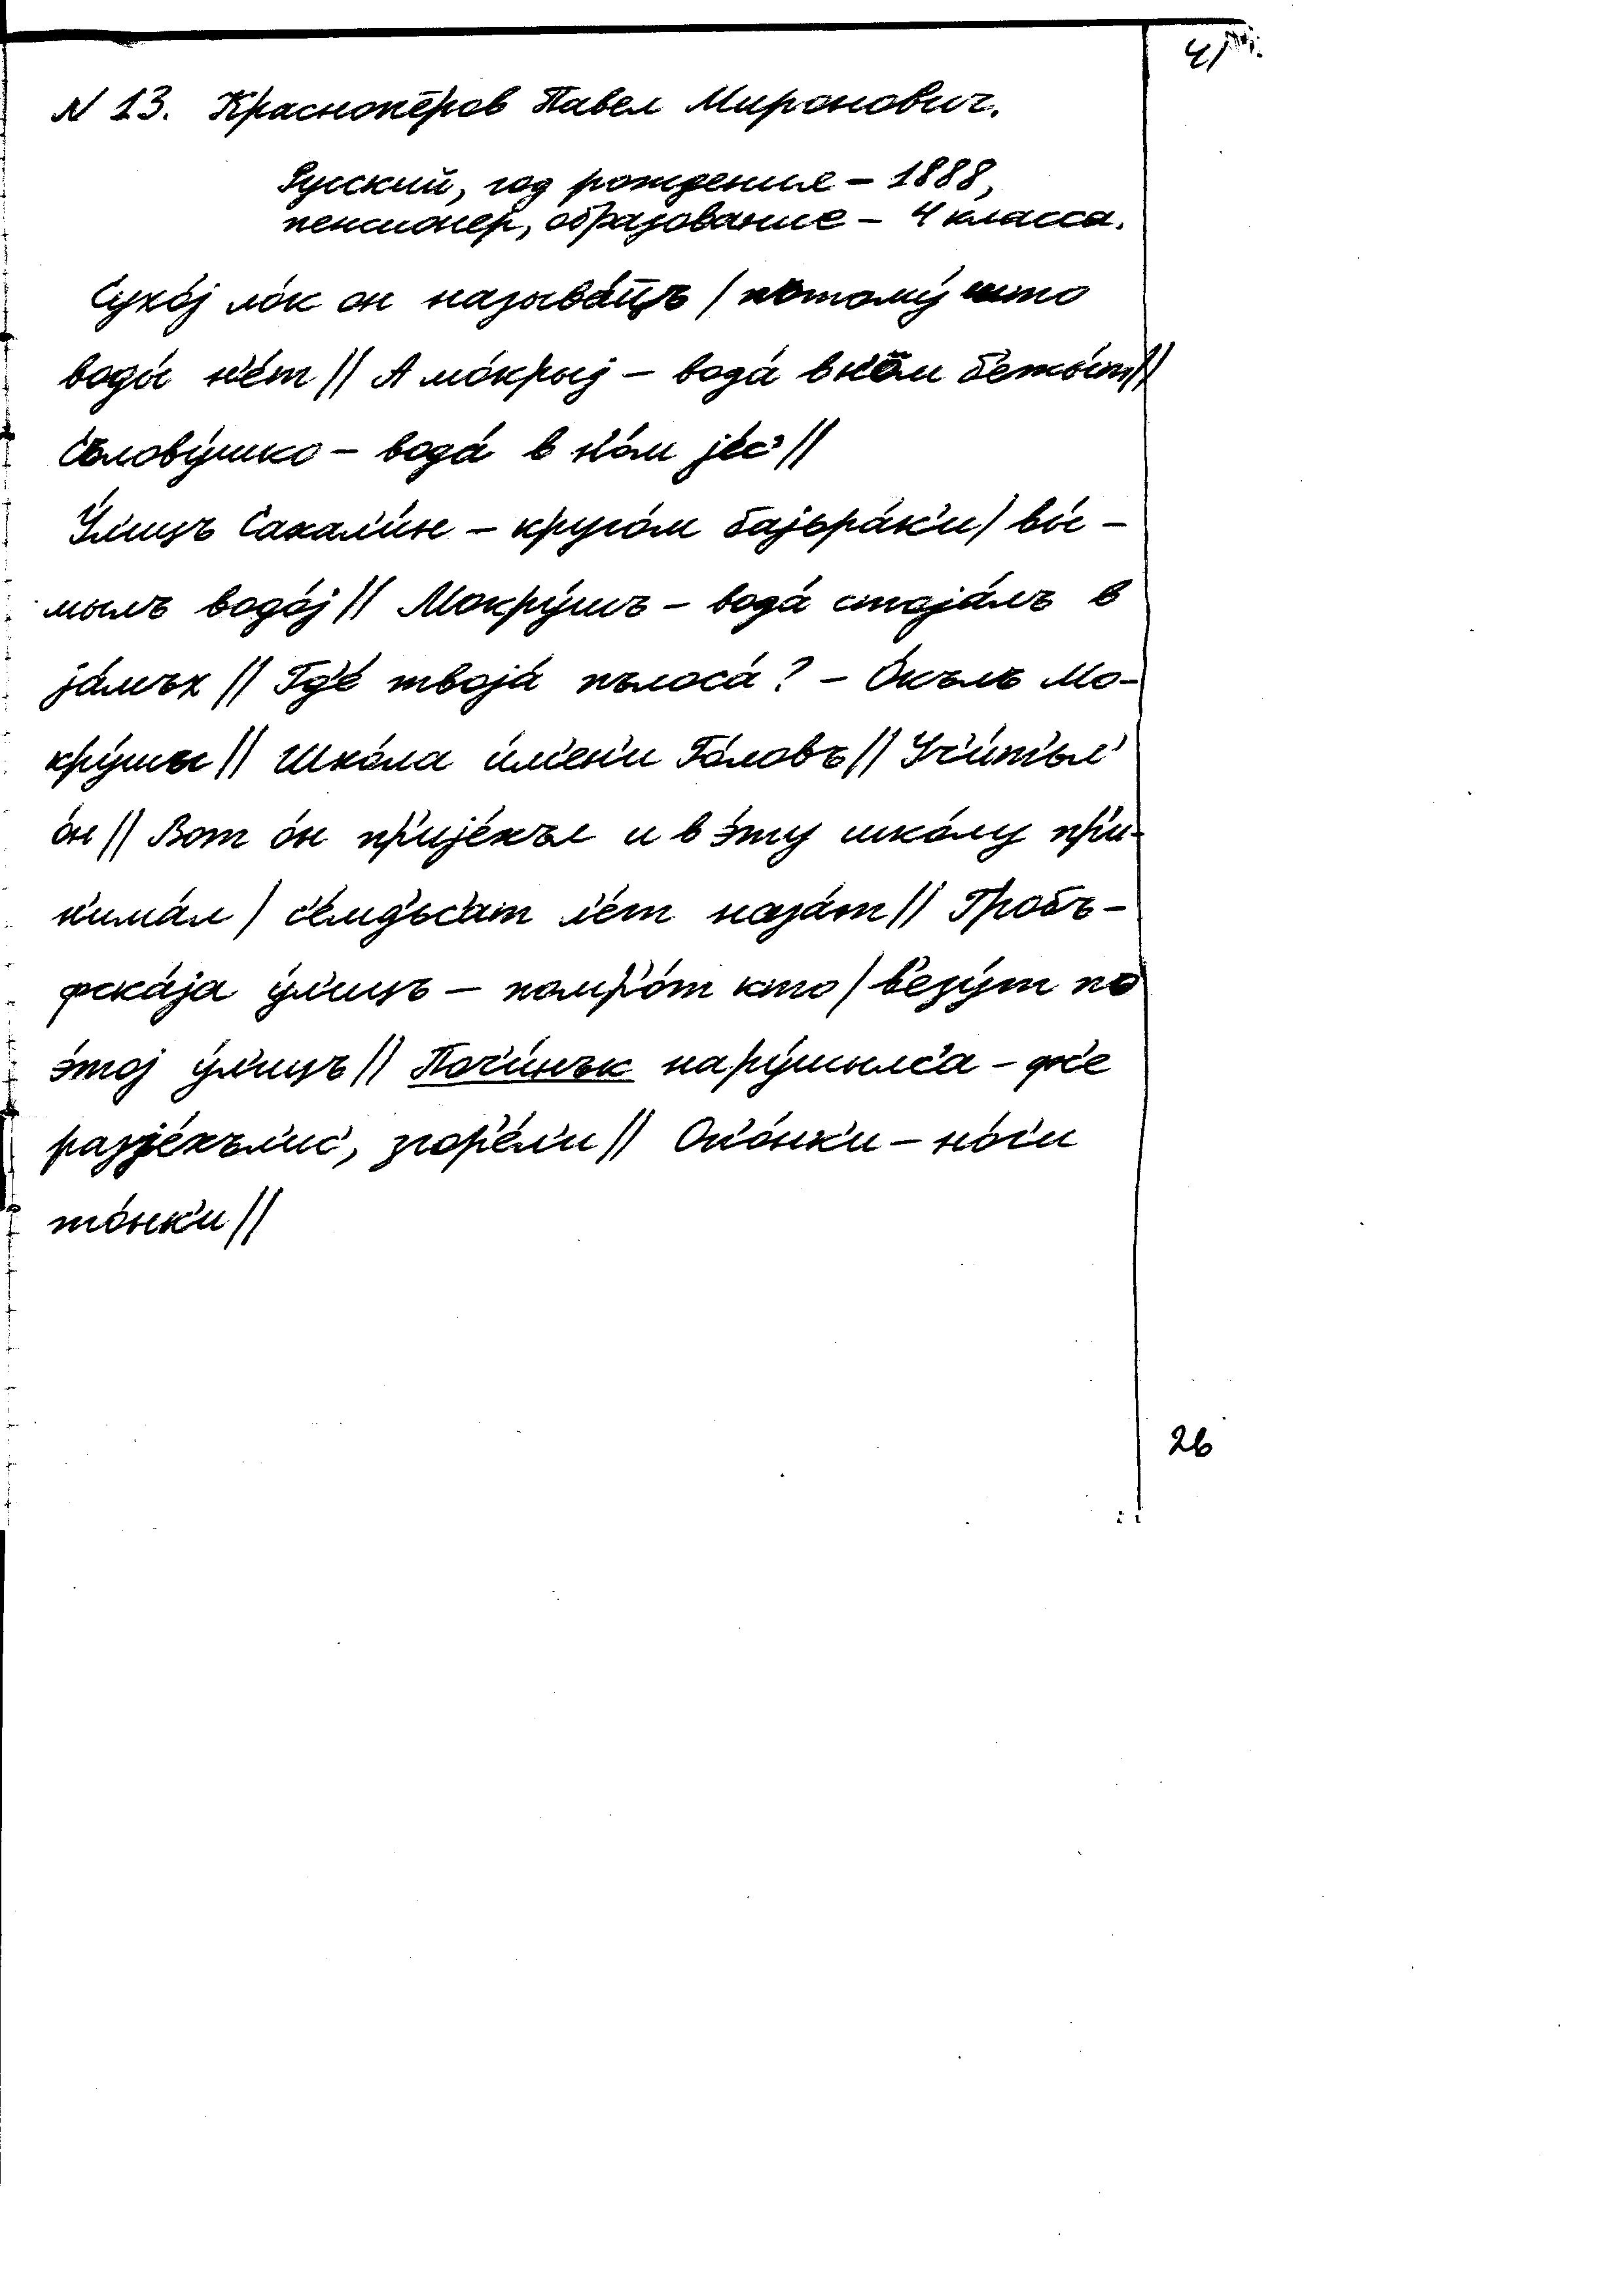 N 13. Краснопёров Павел Миронович.
Русский, год рождения – 1888,
пенсионер, образование – 4 класса.
Сухо́j ло́к он называ́т̄цъ / потому́ што
воды́ н'е́т // А мо́крыj – вода́ в н'о́м б'ежы́т //
Съловýшко – вода́ в н'о́м jе́с' //
У́л'ицъ Сахал'и́н – круго́м баjьра́к'и / вы́-
мылъ водо́j // Мокрýшъ – вода́ стоjа́лъ в
jа́мъх // Гд'е́ твоjа́ пълоса́? – О́къль Мо-
крýшы // Школа и́м'ен'и Го́ловъ // Уч'и́т'ьл'
о́н // Вот о́н пр'иjе́хъл и в э́ту шко́лу пр'и-
н'има́л / с'е́мд'ьс'ат л'е́т наза́т // Гробъ-
фска́jа у́л'ицъ – помр'о́т кто / в'езýт по
э́тоj у́л'ицъ // Поч'и́нък нарýшылс'а – фс'е
разjе́хъл'ис', згор'е́л'и // Оп'о́нк'и – но́г'и
то́нк'и //
26